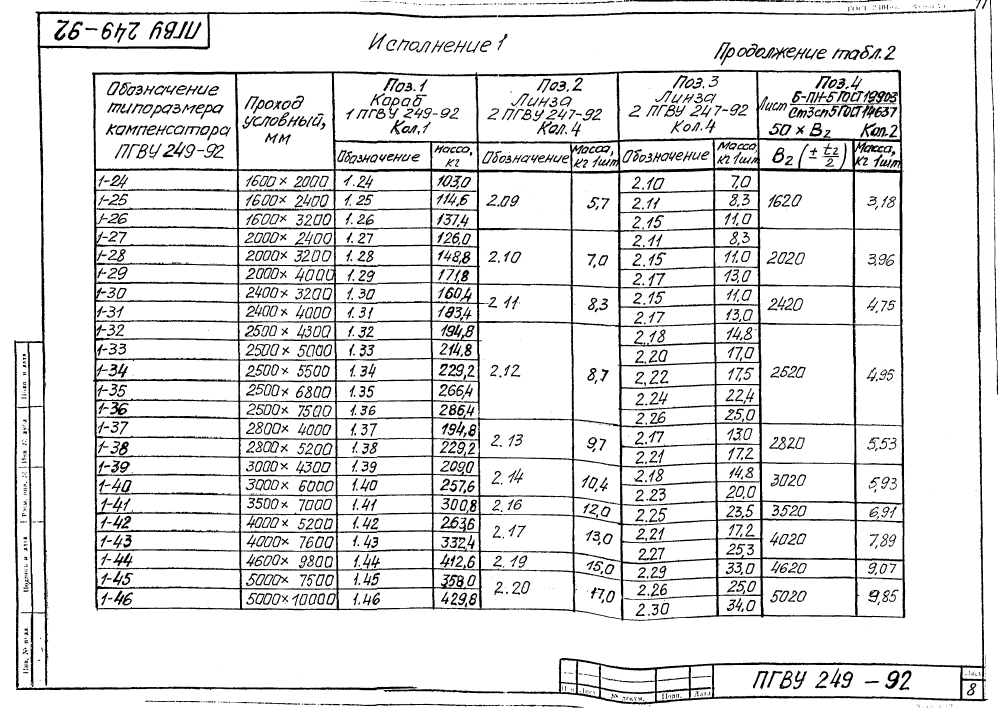 ПГВУ 249-92
Исполнение 1
Продолжение табл.2
Обозначение типоразмера компенсатора ПГВУ 249-92
Проход условный, мм
Поз.1 Короб 1 ПГВУ 249-92 Кол.1
Поз.2 Линза 2 ПГВУ 247-92 Кол.4
Поз.3 Линза 2 ПГВУ 247-92 Кол.4
Поз.4 Лист Б-ПН-5 ГОСТ 19903 Ст3сп5 ГОСТ 14637 50 × B2 Кол.2
Обозначение масса, кг Обозначение Масса, кг 1шт Обозначение Масса, кг 1шт B2 (± t2/2) Масса, кг 1шт
1-24 1600 × 2000 1.24 103,0 2.09 5,7 2.10 7,0 1620 3,18
1-25 1600 × 2400 1.25 114,6 2.11 8,3
1-26 1600 × 3200 1.26 137,4 2.15 11,0
1-27 2000 × 2400 1.27 126,0 2.10 7,0 2.11 8,3 2020 3,96
1-28 2000 × 3200 1.28 148,8 2.15 11,0
1-29 2000 × 4000 1.29 171,8 2.17 13,0
1-30 2400 × 3200 1.30 160,4 2.11 8,3 2.15 11,0 2420 4,75
1-31 2400 × 4000 1.31 183,4 2.17 13,0
1-32 2500 × 4300 1.32 194,8 2.12 8,7 2.18 14,8 2520 4,95
1-33 2500 × 5000 1.33 214,8 2.20 17,0
1-34 2500 × 5500 1.34 229,2 2.22 17,5
1-35 2500 × 6800 1.35 266,4 2.24 22,4
1-36 2500 × 7500 1.36 286,4 2.26 25,0
1-37 2800 × 4000 1.37 194,8 2.13 9,7 2.17 13,0 2820 5,53
1-38 2800 × 5200 1.38 229,2 2.21 17,2
1-39 3000 × 4300 1.39 209,0 2.14 10,4 2.18 14,8 3020 5,93
1-40 3000 × 6000 1.40 257,6 2.23 20,0
1-41 3500 × 7000 1.41 300,8 2.16 12,0 2.25 23,5 3520 6,91
1-42 4000 × 5200 1.42 263,6 2.17 13,0 2.21 17,2 4020 7,89
1-43 4000 × 7600 1.43 332,4 2.27 25,3
1-44 4600 × 9800 1.44 412,6 2.19 15,0 2.29 33,0 4620 9,07
1-45 5000 × 7500 1.45 358,0 2.20 17,0 2.26 25,0 5020 9,85
1-46 5000 × 10000 1.46 429,8 2.30 34,0
№ докум. Подп. Дата
ПГВУ 249 - 92
Лист
8